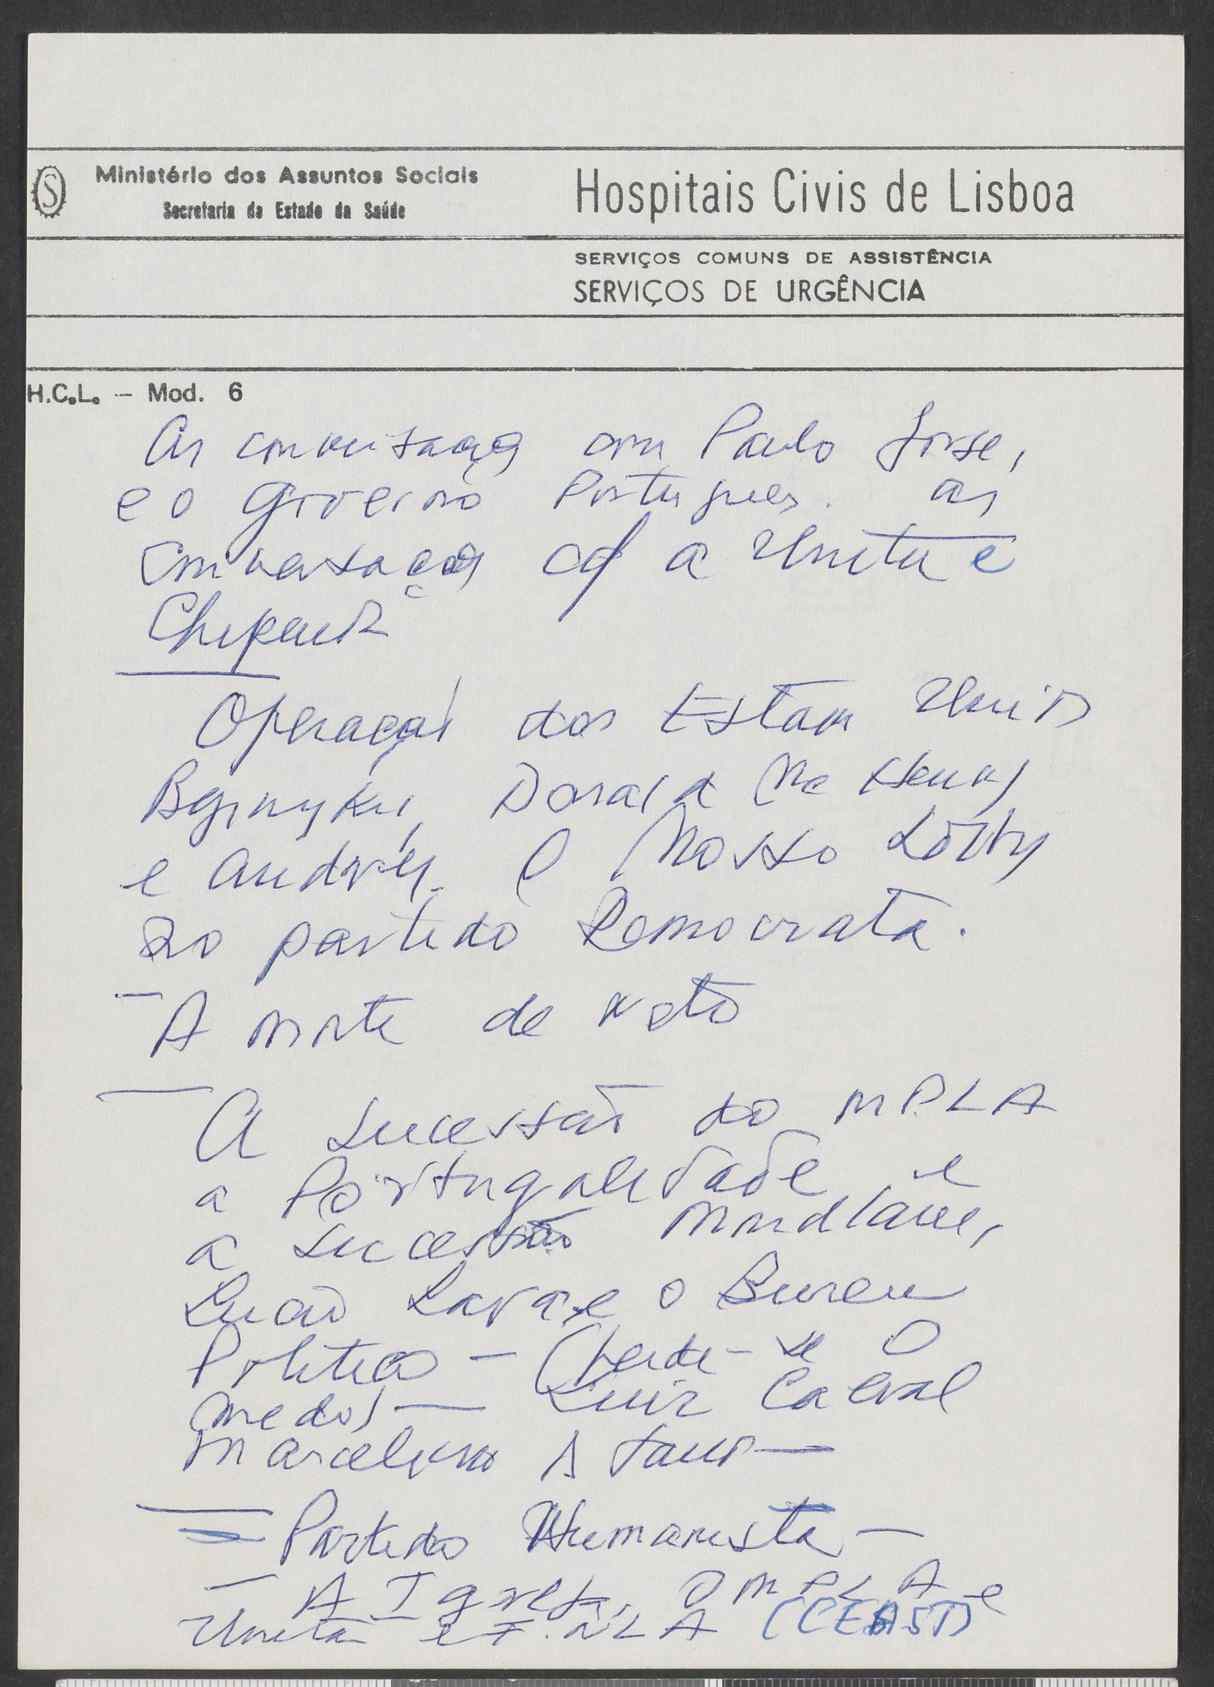 Ministério dos Assuntos Sociais
Secretaria de Estado da Saúde
Hospitais Civis de Lisboa
SERVIÇOS COMUNS DE ASSISTÊNCIA
SERVIÇOS DE URGÊNCIA
H.C.L. — Mod. 6
As conversações com Paulo Jorge,
e o Governo Portugues. as
conversações c/ a Unita e
Chipenda
Operação dos Estados Unidos
Donald Mc Henry
e Andrew. O Nosso Lobby
ao partido Democrata.
— A morte de Neto
— A sucessão do MPLA
a Portugalidade e
a sucessão Mondlane,
Lucio Lara e o Bureau
Politico — (perde-se o
medo) — Luiz Cabral
Marcelino
— Partido Humanista —
— A Igreja, O MPLA e
Unita e F.NLA (CEAST)